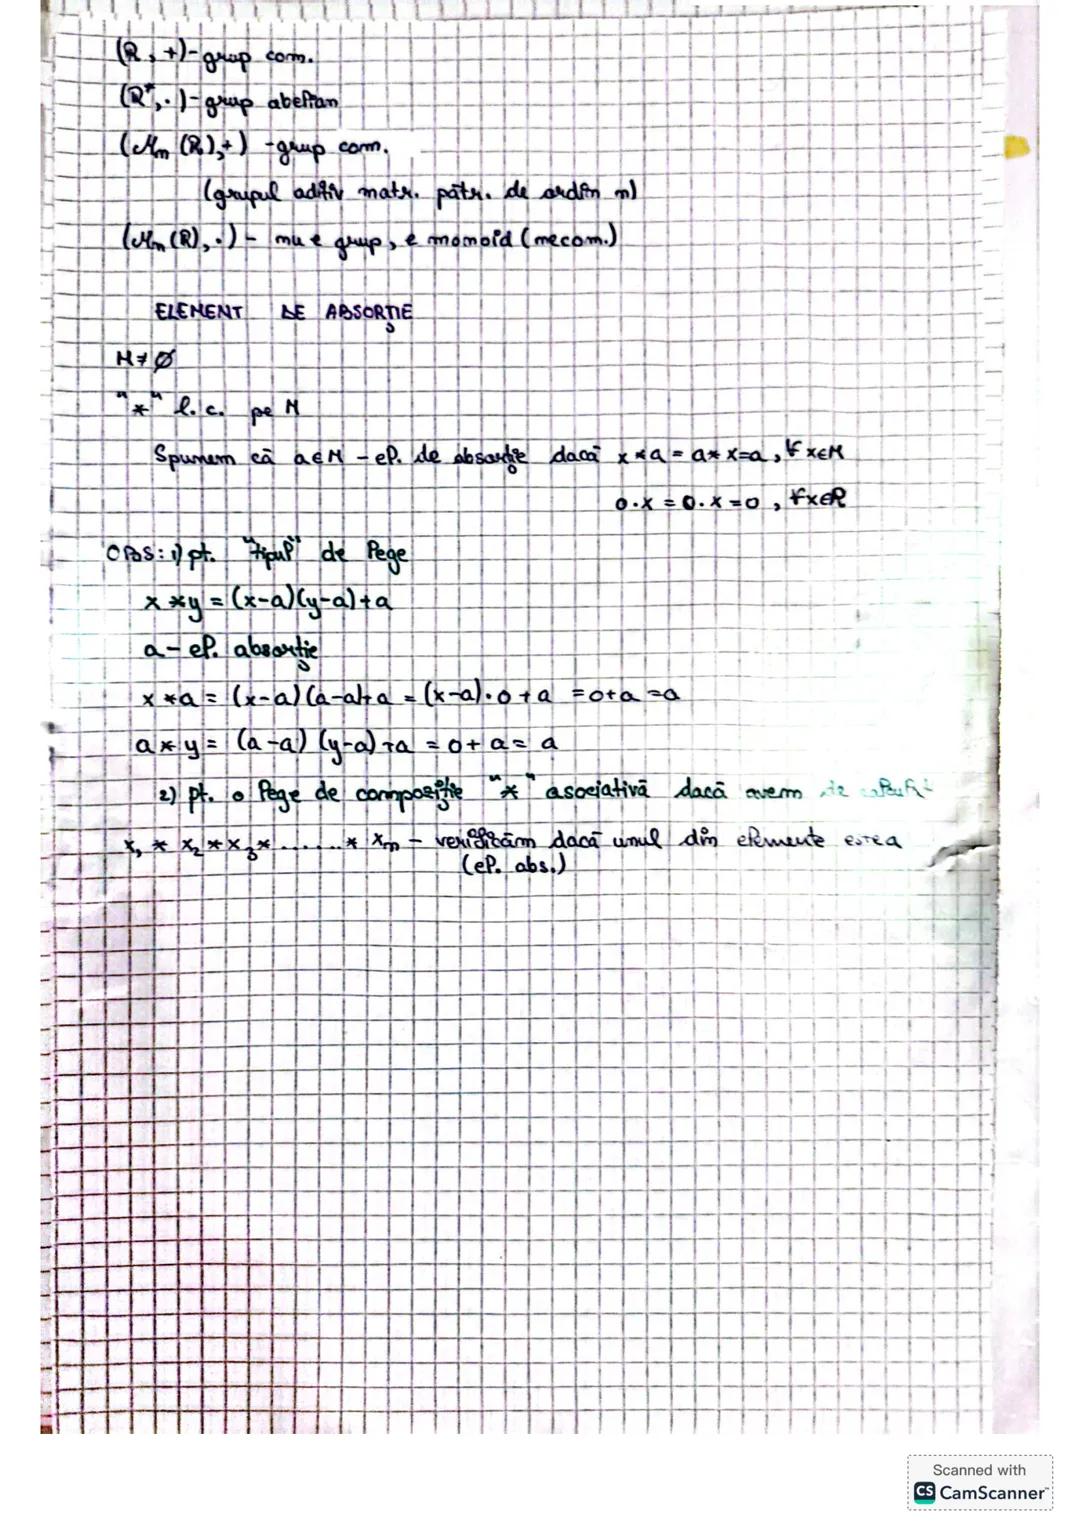 (R, +)-grup com.
(R*, ·)-grup abelian
(Mn (R),+) -grup com.
(grupul aditiv matr. pătr. de ordin n)
(Mn (R), ·) - nu e grup, e monoid (necom.)
ELEMENT DE ABSORȚIE
M≠∅
"*" l.c. pe M
Spunem că a∈M - el. de absorție dacă x*a = a*x=a, ∀x∈M
0·x = 0·x=0, ∀x∈R
OBS: 1) pt. "tipul" de lege
x*y = (x-a)(y-a)+a
a- el. absorție
x*a = (x-a)(a-a)+a = (x-a)·0+a =0+a=a
a*y = (a-a)(y-a)+a = 0+a= a
2) pt. o lege de compoziție "*" asociativă dacă avem de calculat
x₁ * x₂*x₃*......* xn - verificăm dacă unul din elemente este a
(el. abs.)
Scanned with
CS CamScanner™